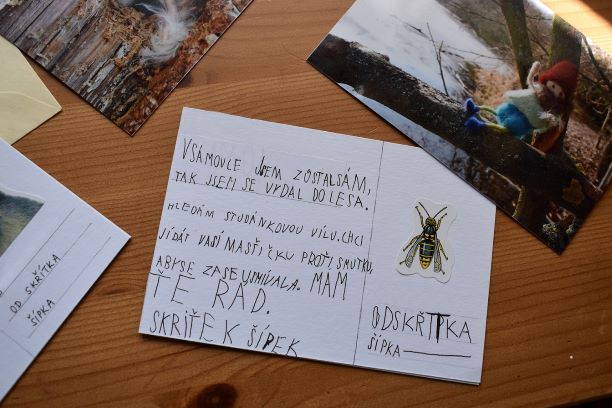 VŠAMOVCE JSEM ZOSTALSÁM,
TAK JSEM SE VYDAL DO LESA.
HLEDÁM STUDÁNKOVOU VÍLU. CHCI
JÍ DÁT VAŠÍ MASTIČKU PROTI SMUTKU,
ABY SE ZASE USMÍVALA. MÁM
TĚ RÁD.
SKŘÍTEK ŠÍPEK
OD SKŘÍTKA
ŠÍPKA
OD SKŘÍTKA
ŠÍPKA